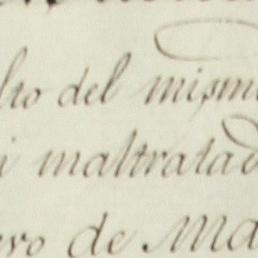 lto del mism
i maltratad
ero de Ma